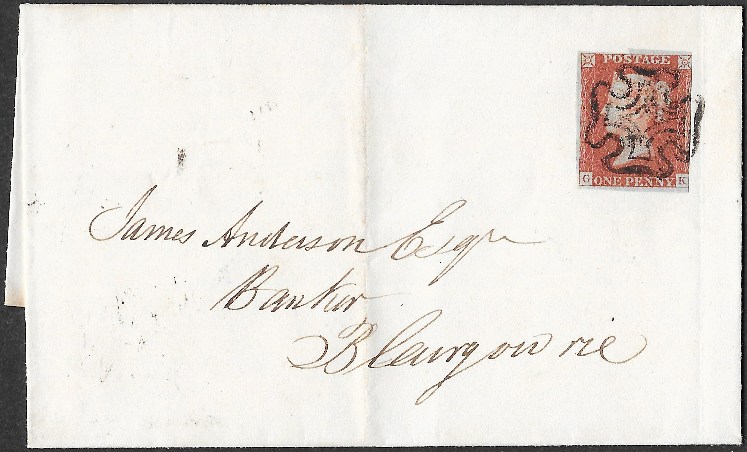 POSTAGE
G ONE PENNY K
James Anderson Esqr
Banker
Blairgowrie